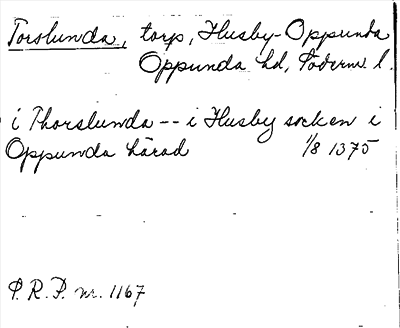 Torslunda, torp, Husby-Oppunda
Oppunda hd, Söderm. l.
i Thorslunda -- i Husby socken i
Oppunda härad 1/8 1375
P. R. P. nr. 1167